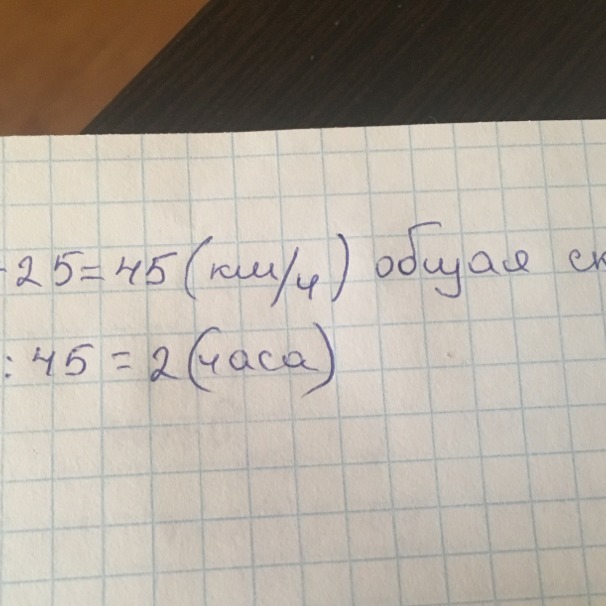 25=45(км/ч) общая ск
:45=2(часа)